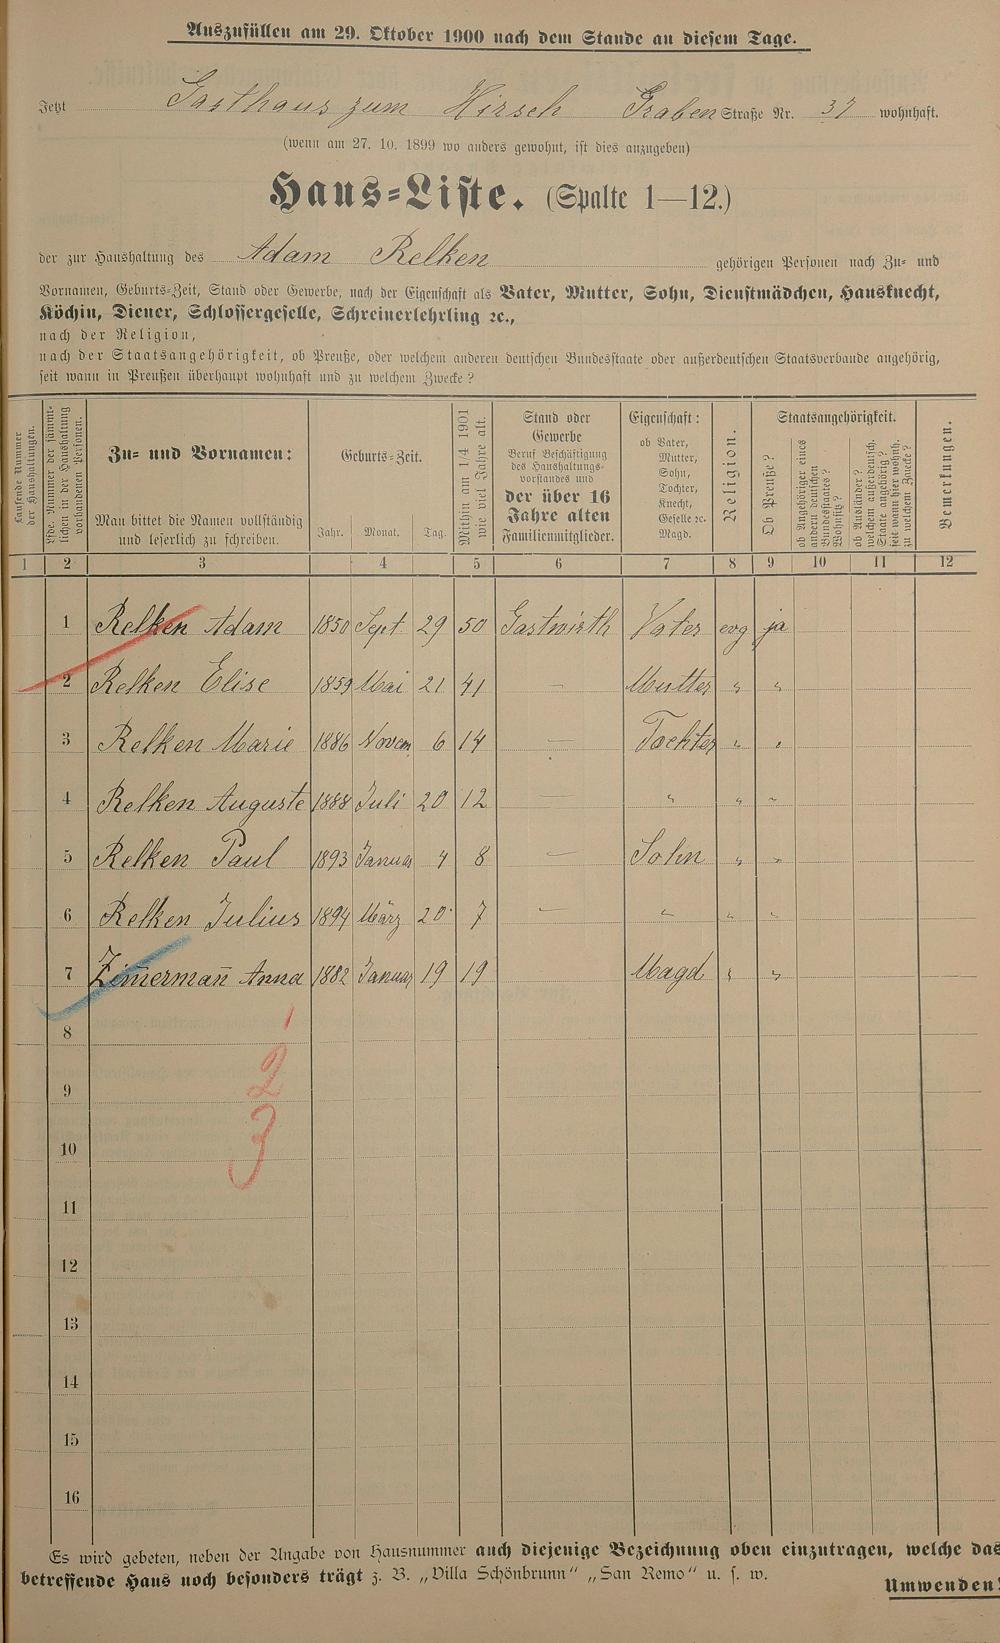 Auszufüllen am 29. Oktober 1900 nach dem Stande an diesem Tage.
Jetzt Gasthaus zum Hirsch Graben Straße Nr. 37 wohnhaft.
(wenn am 27. 10. 1899 wo anders gewohnt, ist dies anzugeben)
Haus-Liste. (Spalte 1—12.)
der zur Haushaltung des Adam Relken gehörigen Personen nach Zu- und
Vornamen, Geburts-Zeit, Stand oder Gewerbe, nach der Eigenschaft als Vater, Mutter, Sohn, Dienstmädchen, Hausknecht,
Köchin, Diener, Schlossergeselle, Schreinerlehrling ꝛc.,
nach der Religion,
nach der Staatsangehörigkeit, ob Preuße, oder welchem anderen deutschen Bundesstaate oder außerdeutschen Staatsverbande angehörig,
seit wann in Preußen überhaupt wohnhaft und zu welchem Zwecke?
Laufende Nummer
der Haushaltungen.
Lfde. Nummer der sämmt-
lichen in der Haushaltung
vorhandenen Personen.
Zu- und Vornamen:
Man bittet die Namen vollständig
und leserlich zu schreiben.
Geburts-Zeit.
Jahr. Monat. Tag.
Mithin am 1/4 1901
wie viel Jahre alt.
Stand oder
Gewerbe
Beruf Beschäftigung
des Haushaltungs-
vorstandes und
der über 16
Jahre alten
Familienmitglieder.
Eigenschaft:
ob Vater,
Mutter,
Sohn,
Tochter,
Knecht,
Geselle ꝛc.
Magd.
Religion.
Staatsangehörigkeit.
Ob Preuße?
ob Angehöriger eines
andern deutschen
Bundesstaates?
Wohnsitz?
ob Ausländer?
welchem außerdeutsch.
Staate angehörig?
seit wann hier wohnh.
zu welchem Zwecke?
Bemerkungen.
1 2 3 4 5 6 7 8 9 10 11 12
1 Relken Adam 1850 Sept 29 50 Gastwirth Vater evg ja
2 Relken Elise 1859 Mai 21 41 — Mutter " "
3 Relken Marie 1886 Novem 6 14 — Tochter " "
4 Relken Auguste 1888 Juli 20 12 — " " "
5 Relken Paul 1893 Januar 4 8 — Sohn " "
6 Relken Julius 1894 März 20 7 — " " "
7 Zim̄erman̄ Anna 1882 Januar 19 19 Magd " "
1
8
2
9
3
10
11
12
13
14
15
16
Es wird gebeten, neben der Angabe von Hausnummer auch diejenige Bezeichnung oben einzutragen, welche das
betreffende Haus noch besonders trägt z. B. „Villa Schönbrunn" „San Remo" u. s. w.
Umwenden!